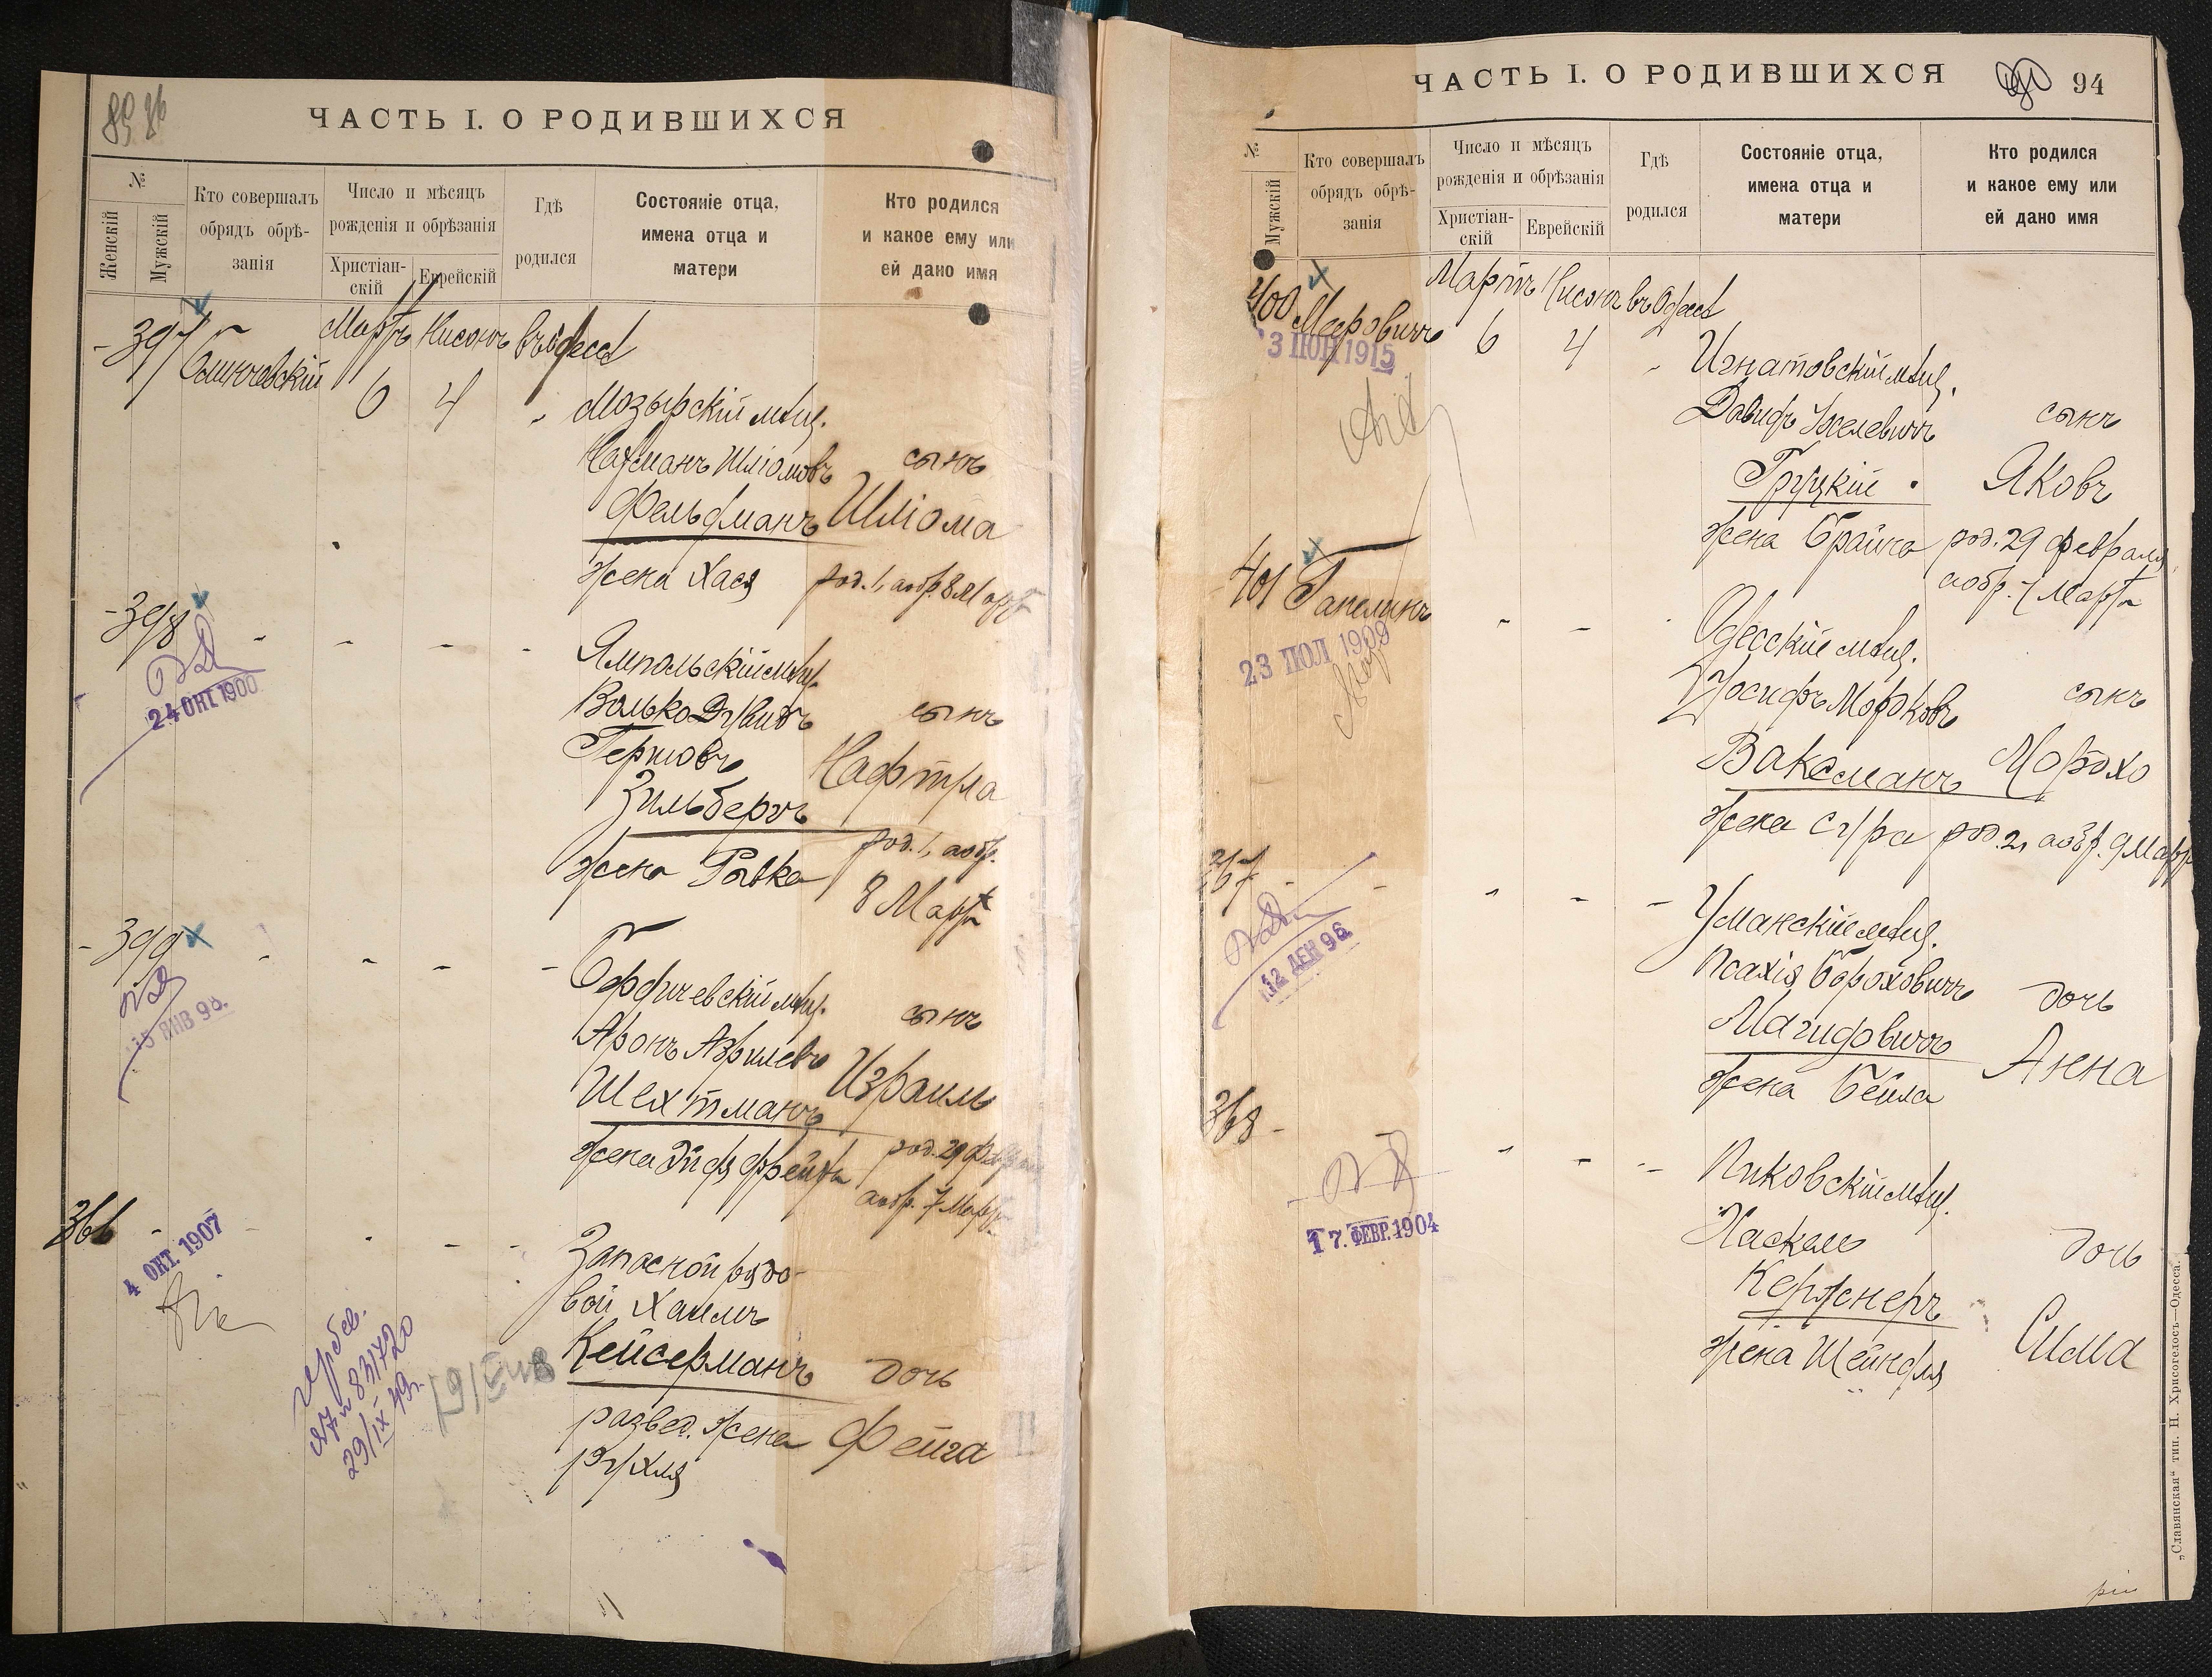 89 86
ЧАСТЬ I. О РОДИВШИХСЯ
№
Женскій
Мужскій
Кто совершалъ
обрядъ обрѣ-
занія
Число и мѣсяцъ
рожденія и обрѣзанія
Христіан-
скій
Еврейскій
Гдѣ
родился
Состояніе отца,
имена отца и
матери
Кто родился
и какое ему или
ей дано имя
Мартъ Нисонъ въ Одессѣ
397
6 4
Мозырскій мѣщ.
Нахманъ Шліомовъ сынъ
Фельдманъ Шліома
жена Хася род. 1, а обр. 8 Март
398
24 ОКТ 1900
Ямпольскій мѣщ.
Волько Давидъ сынъ
Гершовъ Нафтула
Зильберъ
род. 1, а обр.
жена Ривка
8 Март
399
15 ЯНВ 98.
Бердичевскій мѣщ.
Аронъ Азрилевъ сынъ
Шехтманъ Израиль
жена Эйдя Фрейда род. 29 февраля
а обр. 7 Март
366
4 ОКТ. 1907
Запасной рядо-
вой Хаимъ
Кейсерманъ дочь
развед. жена Фейга
Рухля
гербов.
№ 831720
29/IX 49г.
ЧАСТЬ I. О РОДИВШИХСЯ
94
№
Мужскій
Кто совершалъ
обрядъ обрѣ-
занія
Число и мѣсяцъ
рожденія и обрѣзанія
Христіан-
скій
Еврейскій
Гдѣ
родился
Состояніе отца,
имена отца и
матери
Кто родился
и какое ему или
ей дано имя
Мартъ Нисонъ въ Одессѣ
400 Мееровичъ 6 4
3 ІЮН 1915
Игнатовскій мѣщ.
Давидъ Іоселевичъ сынъ
Груцкій Яковъ
жена Брайна род. 29 февраля
а обр. 7 Март
401 Гапелинъ
23 ІЮЛ 1909
Одесскій мѣщ.
Іосифъ Мордковъ сынъ
Ваксманъ Мордхо
жена Сура род. 2, а обр. 9 Март
367
12 ДЕК 96
Уманскій мѣщ.
Псахія Бороховичъ дочь
Магидовичъ Анна
жена Бейла
368
17. ФЕВР. 1904
Пиковскій мѣщ.
Хаскель дочь
Кержнеръ
жена Шейндля Сима
„Славянская“ тип. Н. Хрисогелосъ—Одесса.